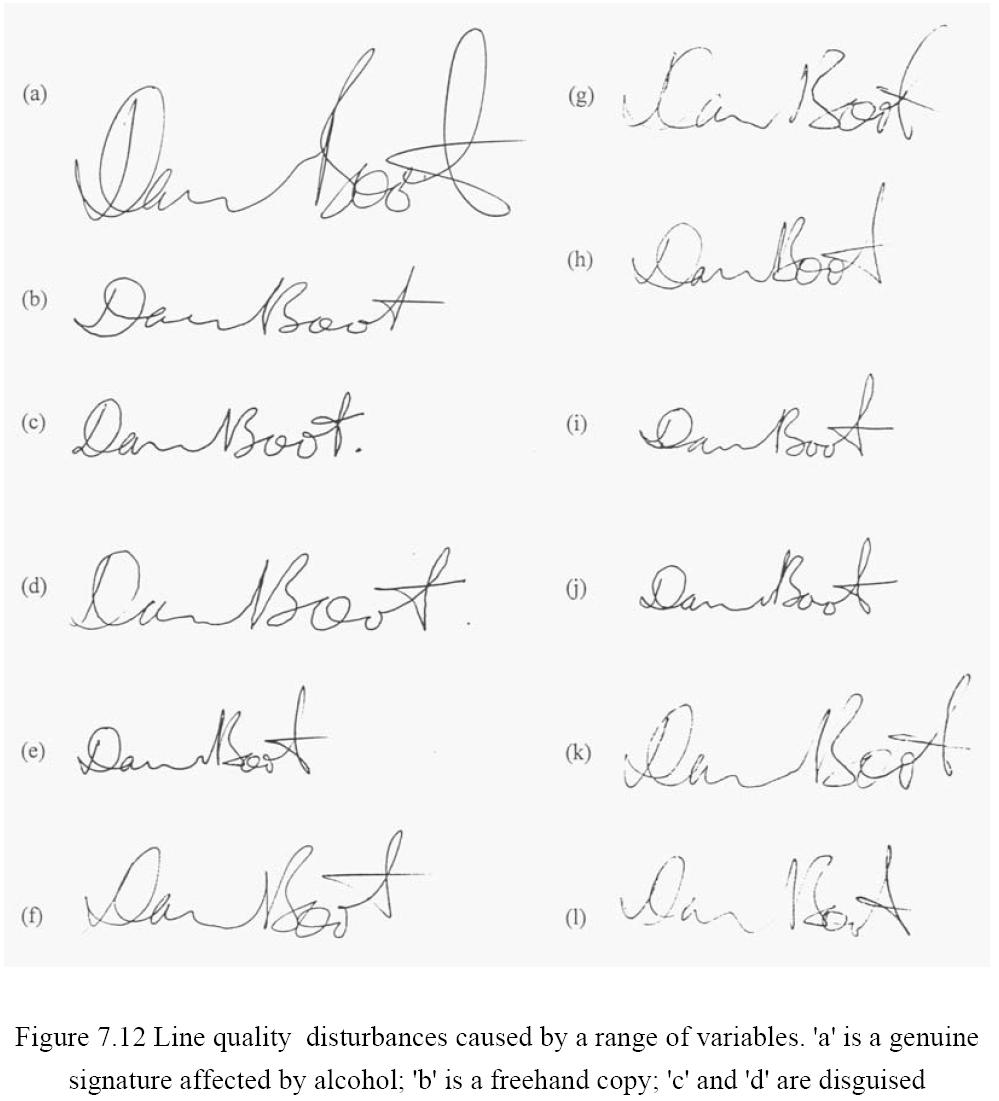 (a)
Dan Boot
(b)
Dan Boot
(c)
Dan Boot.
(d)
Dan Boot.
(e)
Dan Boot
(f)
Dan Boot
(g)
Dan Boot
(h)
Dan Boot
(i)
Dan Boot
(j)
Dan Boot
(k)
Dan Boot
(l)
Dan Boot
Figure 7.12 Line quality disturbances caused by a range of variables. 'a' is a genuine
signature affected by alcohol; 'b' is a freehand copy; 'c' and 'd' are disguised